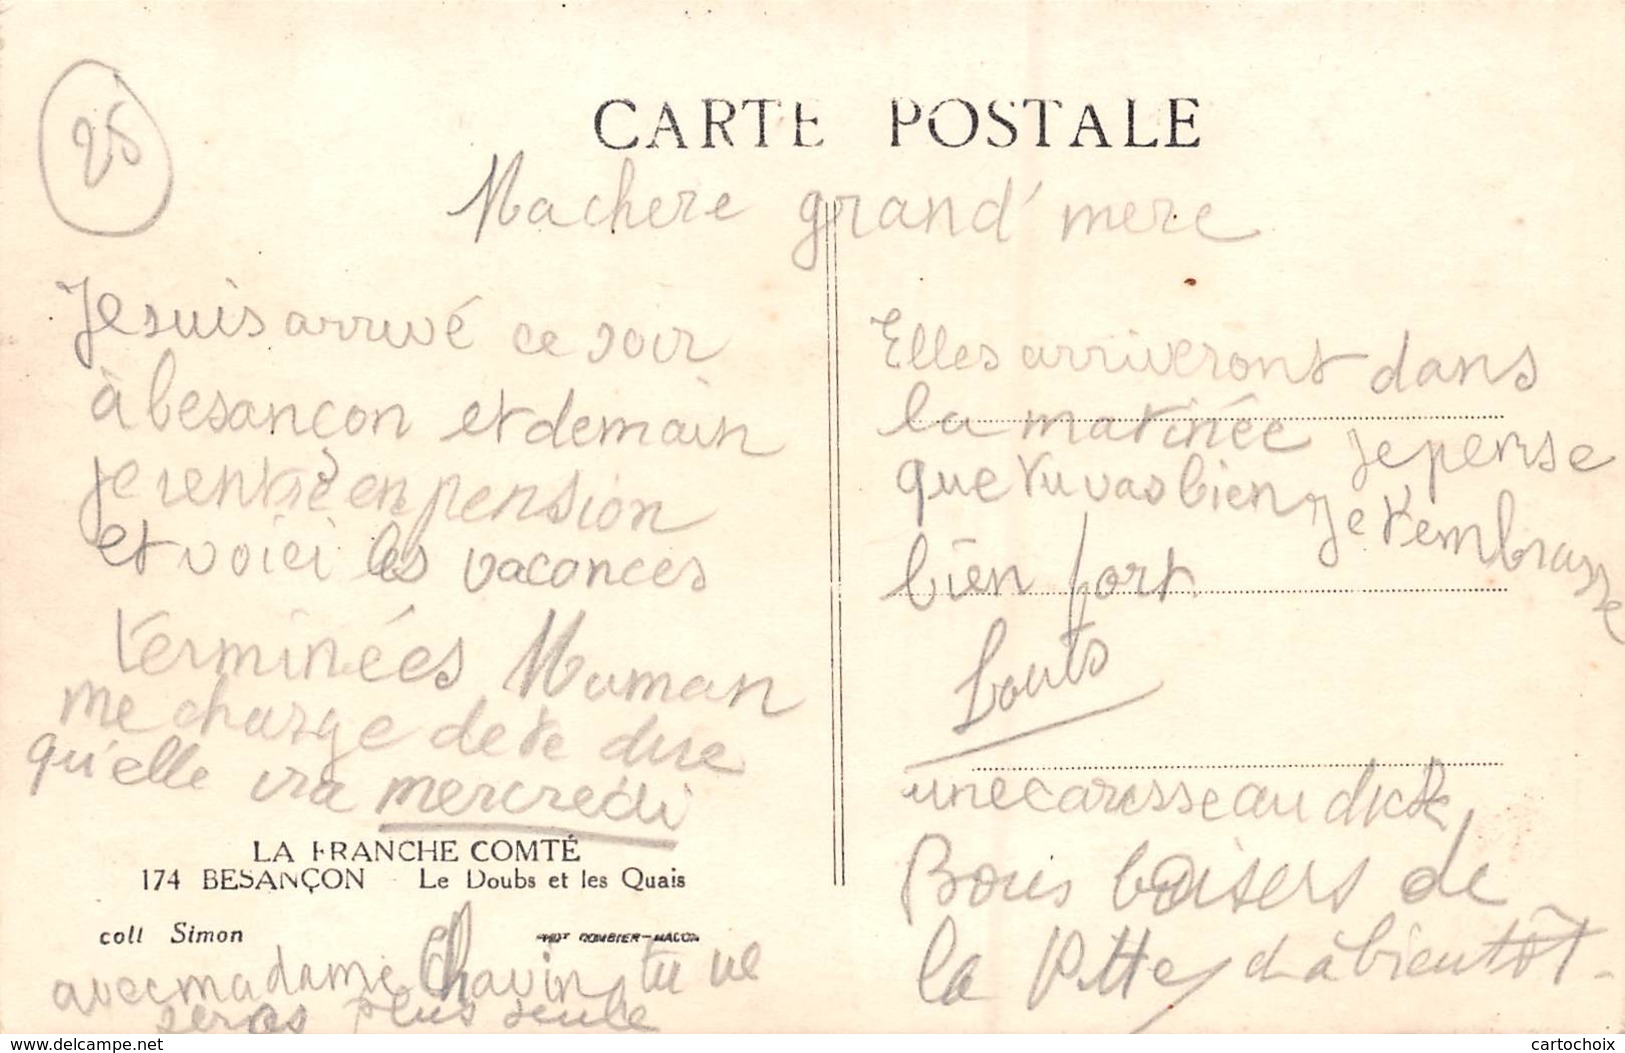 25
CARTE POSTALE
Machere grand'mere
Je suis arrivé ce soir
à besançon et demain
je rentre en pension
et voici les vacances
terminées Maman
me charge de te dire
qu'elle ira mercredi
LA FRANCHE COMTÉ
174 BESANÇON Le Doubs et les Quais
coll Simon
PHOT COMBIER-MACON
avec madame Chavin, tu ne
seras plus seule
Elles arriveront dans
la matinée je pense
que tu vas bien je t'embrasse
bien fort.
Louis
une caresse au dick
Bons baisers de
la Ptte, à bientôt.
www.delcampe.net
cartochoix